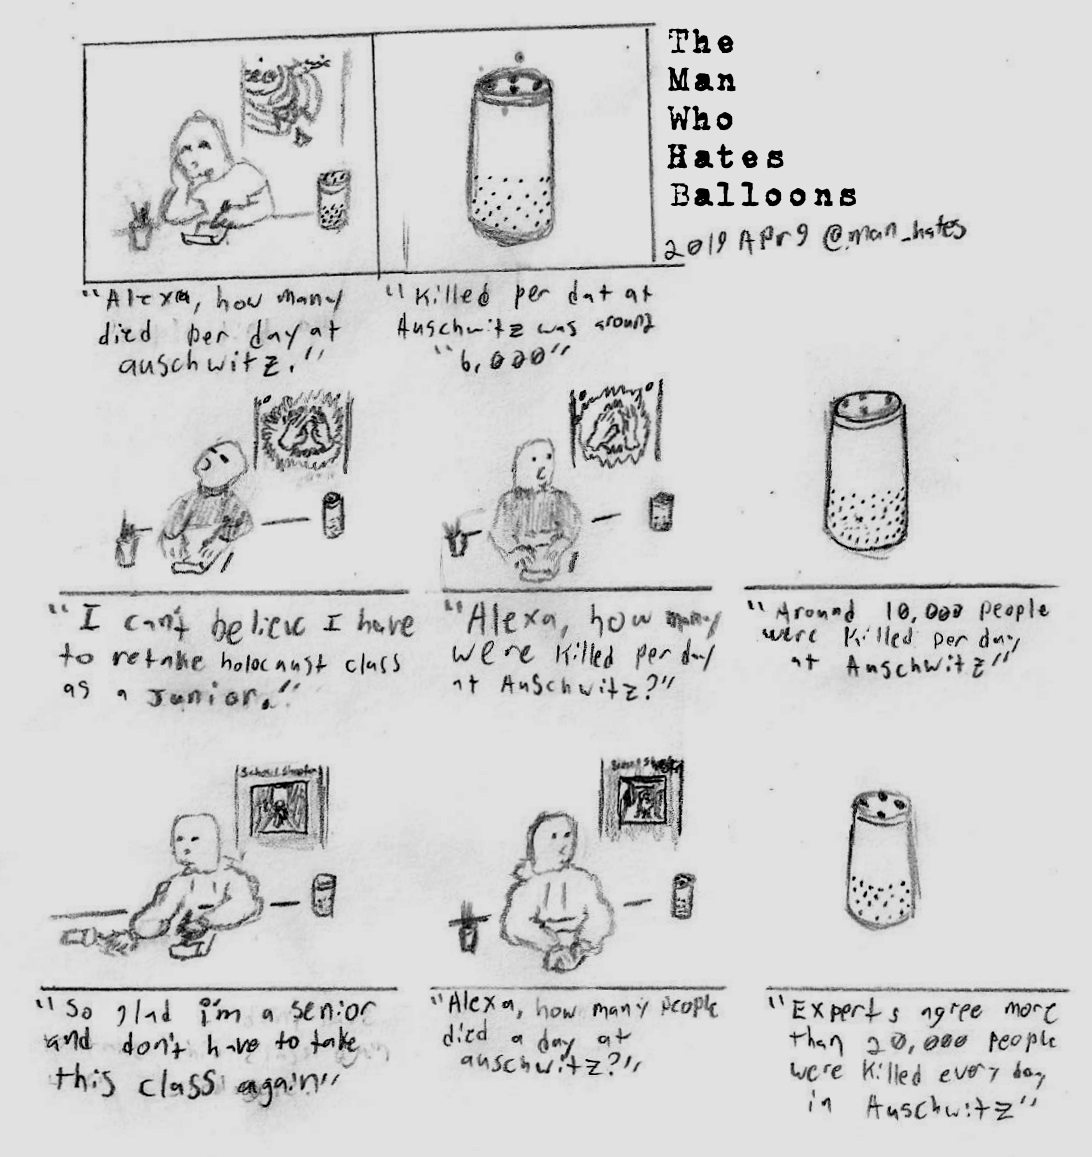 The
Man
Who
Hates
Balloons
2019 Apr 9 @man_hates
"Alexa, how many
died per day at
auschwitz."
"Killed per dat at
Auschwitz was around
"6,000"
"I can't believe I have
to retake holocaust class
as a Junior."
"Alexa, how many
were killed per day
at Auschwitz?"
"Around 10,000 people
were killed per day
at Auschwitz"
School Shooting
"So glad i'm a senior
and don't have to take
this class again"
"Alexa, how many people
died a day at
auschwitz?"
"Experts agree more
than 20,000 people
were killed every day
in Auschwitz"